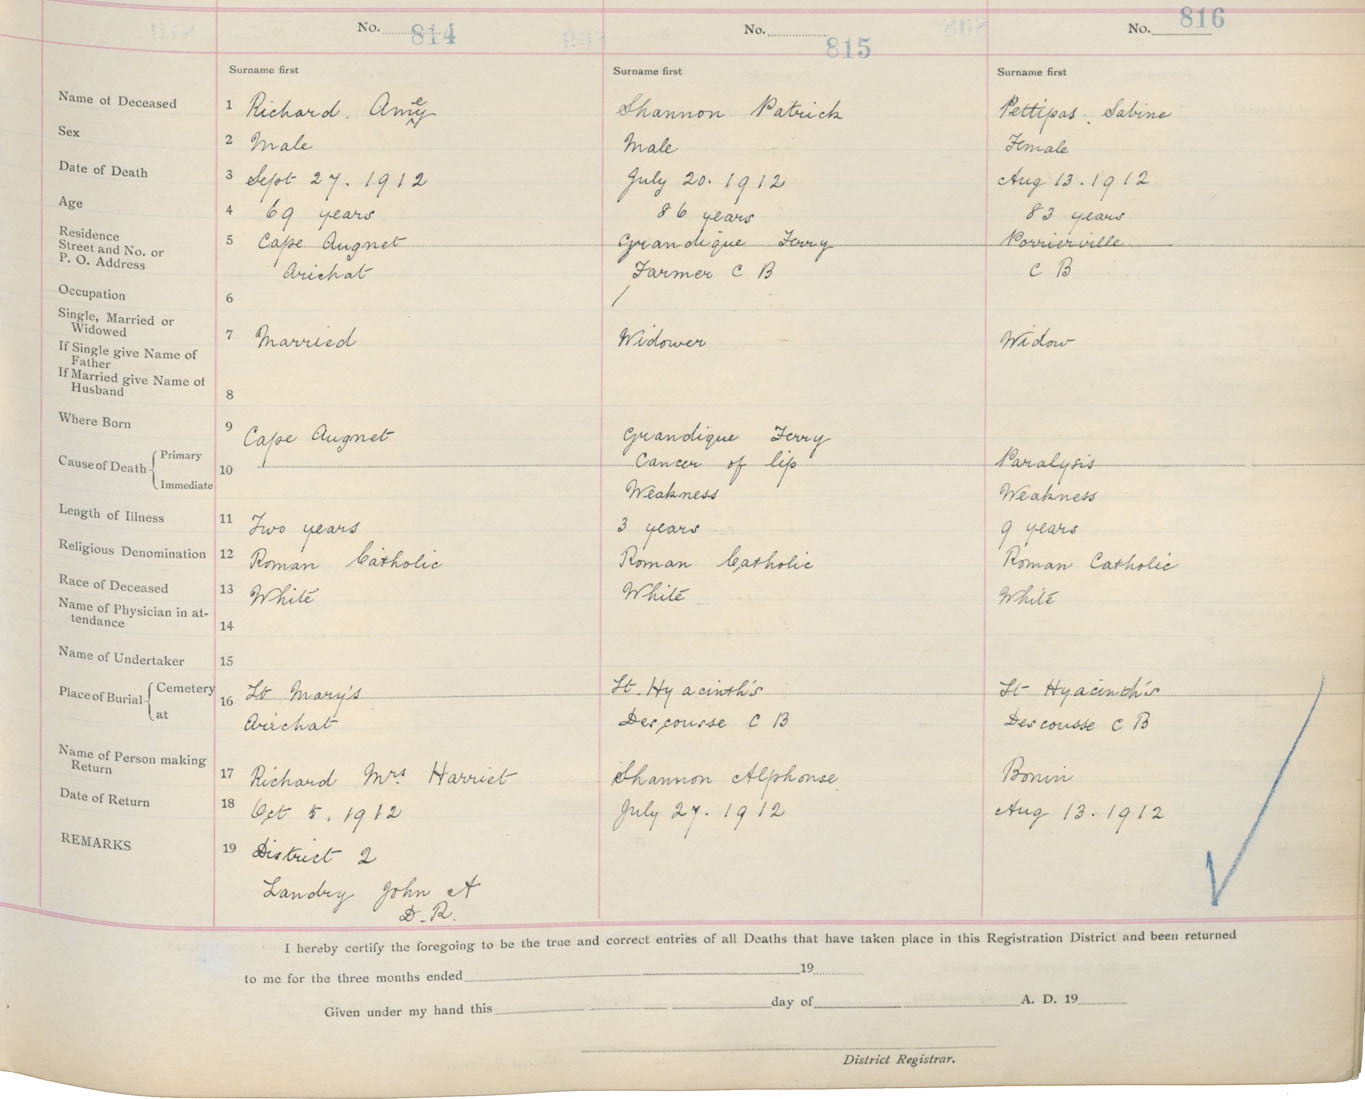 No. 814 No. 815 No. 816
Surname first Surname first Surname first
Name of Deceased 1 Richard. Amey Shannon Patrick Pettipas. Sabine
Sex 2 Male Male Female
Date of Death 3 Sept 27. 1912 July 20. 1912 Aug 13. 1912
Age 4 69 years 86 years 83 years
Residence 5 Cape Augnet Grandique Ferry Porrierville
Street and No. or
P. O. Address Arichat Farmer C B C B
Occupation 6 /
Single, Married or
Widowed 7 Married Widower Widow
If Single give Name of
Father
If Married give Name of
Husband 8
Where Born 9 Cape Augnet Grandique Ferry
Cause of Death Primary 10 Cancer of lip Paralysis
Immediate Weakness Weakness
Length of Illness 11 Two years 3 years 9 years
Religious Denomination 12 Roman Catholic Roman Catholic Roman Catholic
Race of Deceased 13 White White White
Name of Physician in at-
tendance 14
Name of Undertaker 15
Place of Burial Cemetery 16 St Mary's St. Hyacinth's St Hyacinth's
at Arichat Descousse C B Descousse C B
Name of Person making
Return 17 Richard Mrs Harriet Shannon Alphonse Bonin
Date of Return 18 Oct 5. 1912 July 27. 1912 Aug 13. 1912
REMARKS 19 District 2
Landry John A
D. R.
I hereby certify the foregoing to be the true and correct entries of all Deaths that have taken place in this Registration District and been returned
to me for the three months ended 19
Given under my hand this day of A. D. 19
District Registrar.